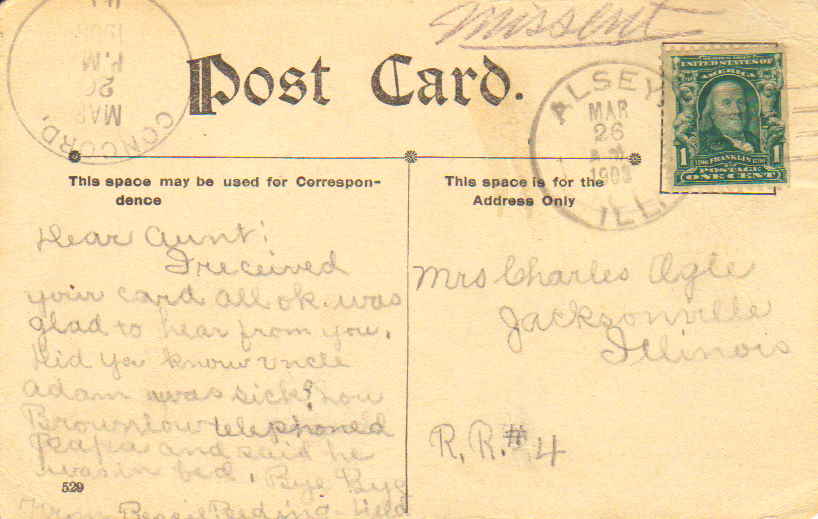 Missent
Post Card.
CONCORD,
MAR
20
P.M
ALSEY,
MAR
26
ILL.
UNITED STATES OF
AMERICA
1 FRANKLIN 1
POSTAGE
ONE CENT
This space may be used for Correspon-
dence
This space is for the
Address Only
Dear Aunt;
I received
your card all ok. was
glad to hear from you.
Did you know uncle
adam was sick? Lou
Brownlow telephoned
Papa and said he
was in bed. Bye Bye
From
Mrs Charles Ogle
Jacksonville
Illinois
R. R. # 4
529